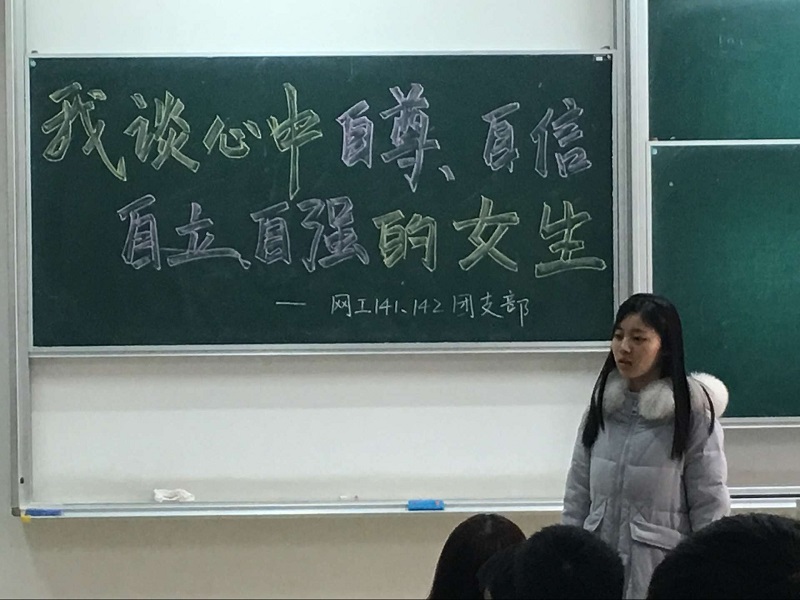 我谈心中自尊、自信
自立、自强的女生
— 网工141、142团支部